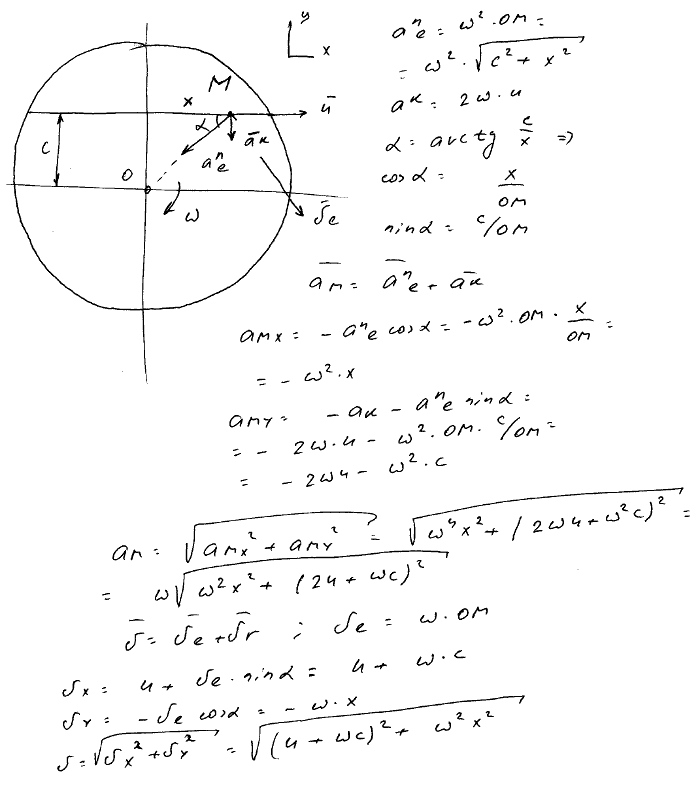 y
x
M
x
ū
α
āк
aⁿe
C
O
ω
v̄e
aⁿe = ω² · OM =
= ω² · √(c² + x²)
aк = 2ω · u
α = arctg c/x =>
cos α = x/OM
sin α = c/OM
āM = āⁿe + āк
aMX = - aⁿe cos α = - ω² · OM · x/OM =
= - ω² · x
aMY = - aк - aⁿe sin α =
= - 2ω · u - ω² · OM · c/OM =
= - 2ωu - ω² · c
aM = √(aMX² + aMY²) = √(ω⁴x² + (2ωu + ω²c)²) =
= ω√(ω²x² + (2u + ωc)²)
v̄ = v̄e + v̄r ; ve = ω · OM
vx = u + ve · sin α = u + ω · c
vY = - ve cos α = - ω · x
v = √(vx² + vY²) = √((u + ωc)² + ω²x²)